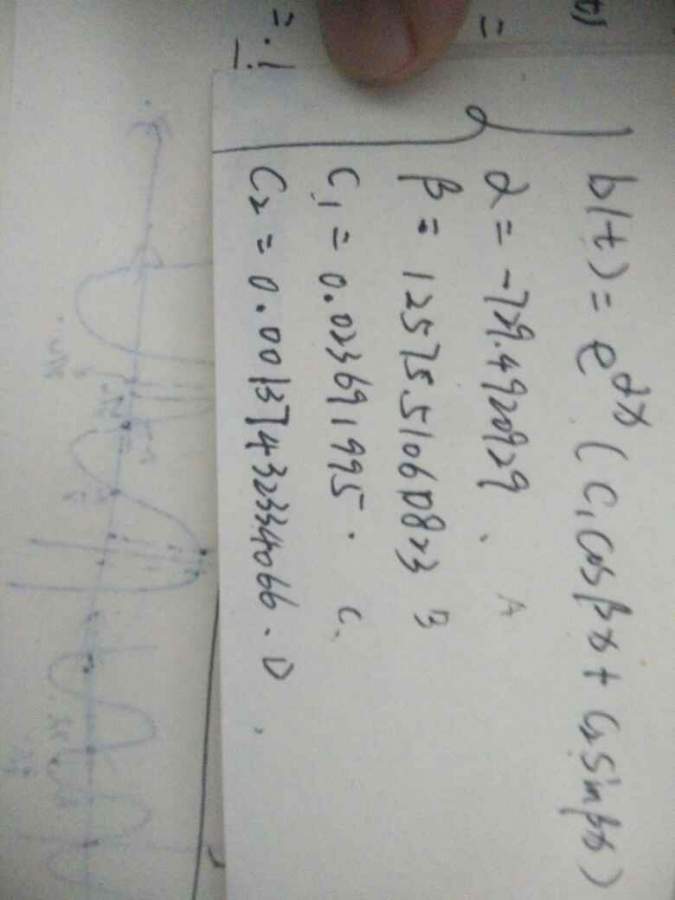 b(t) = e^{αx} (C₁ cos βx + C₂ sin βx)
α = -729.4920929 . A
β = 12575.51060823 B
C₁ = 0.023691995 . C.
C₂ = 0.001374323334066 . D .